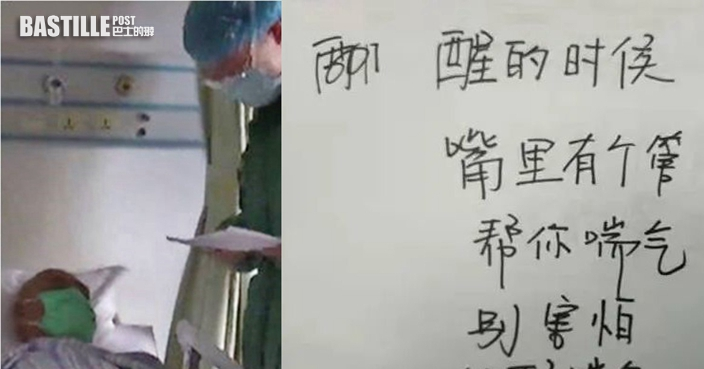 BASTILLE POST
巴士的報
醒的时候
嘴里有个管
帮你喘气
别害怕